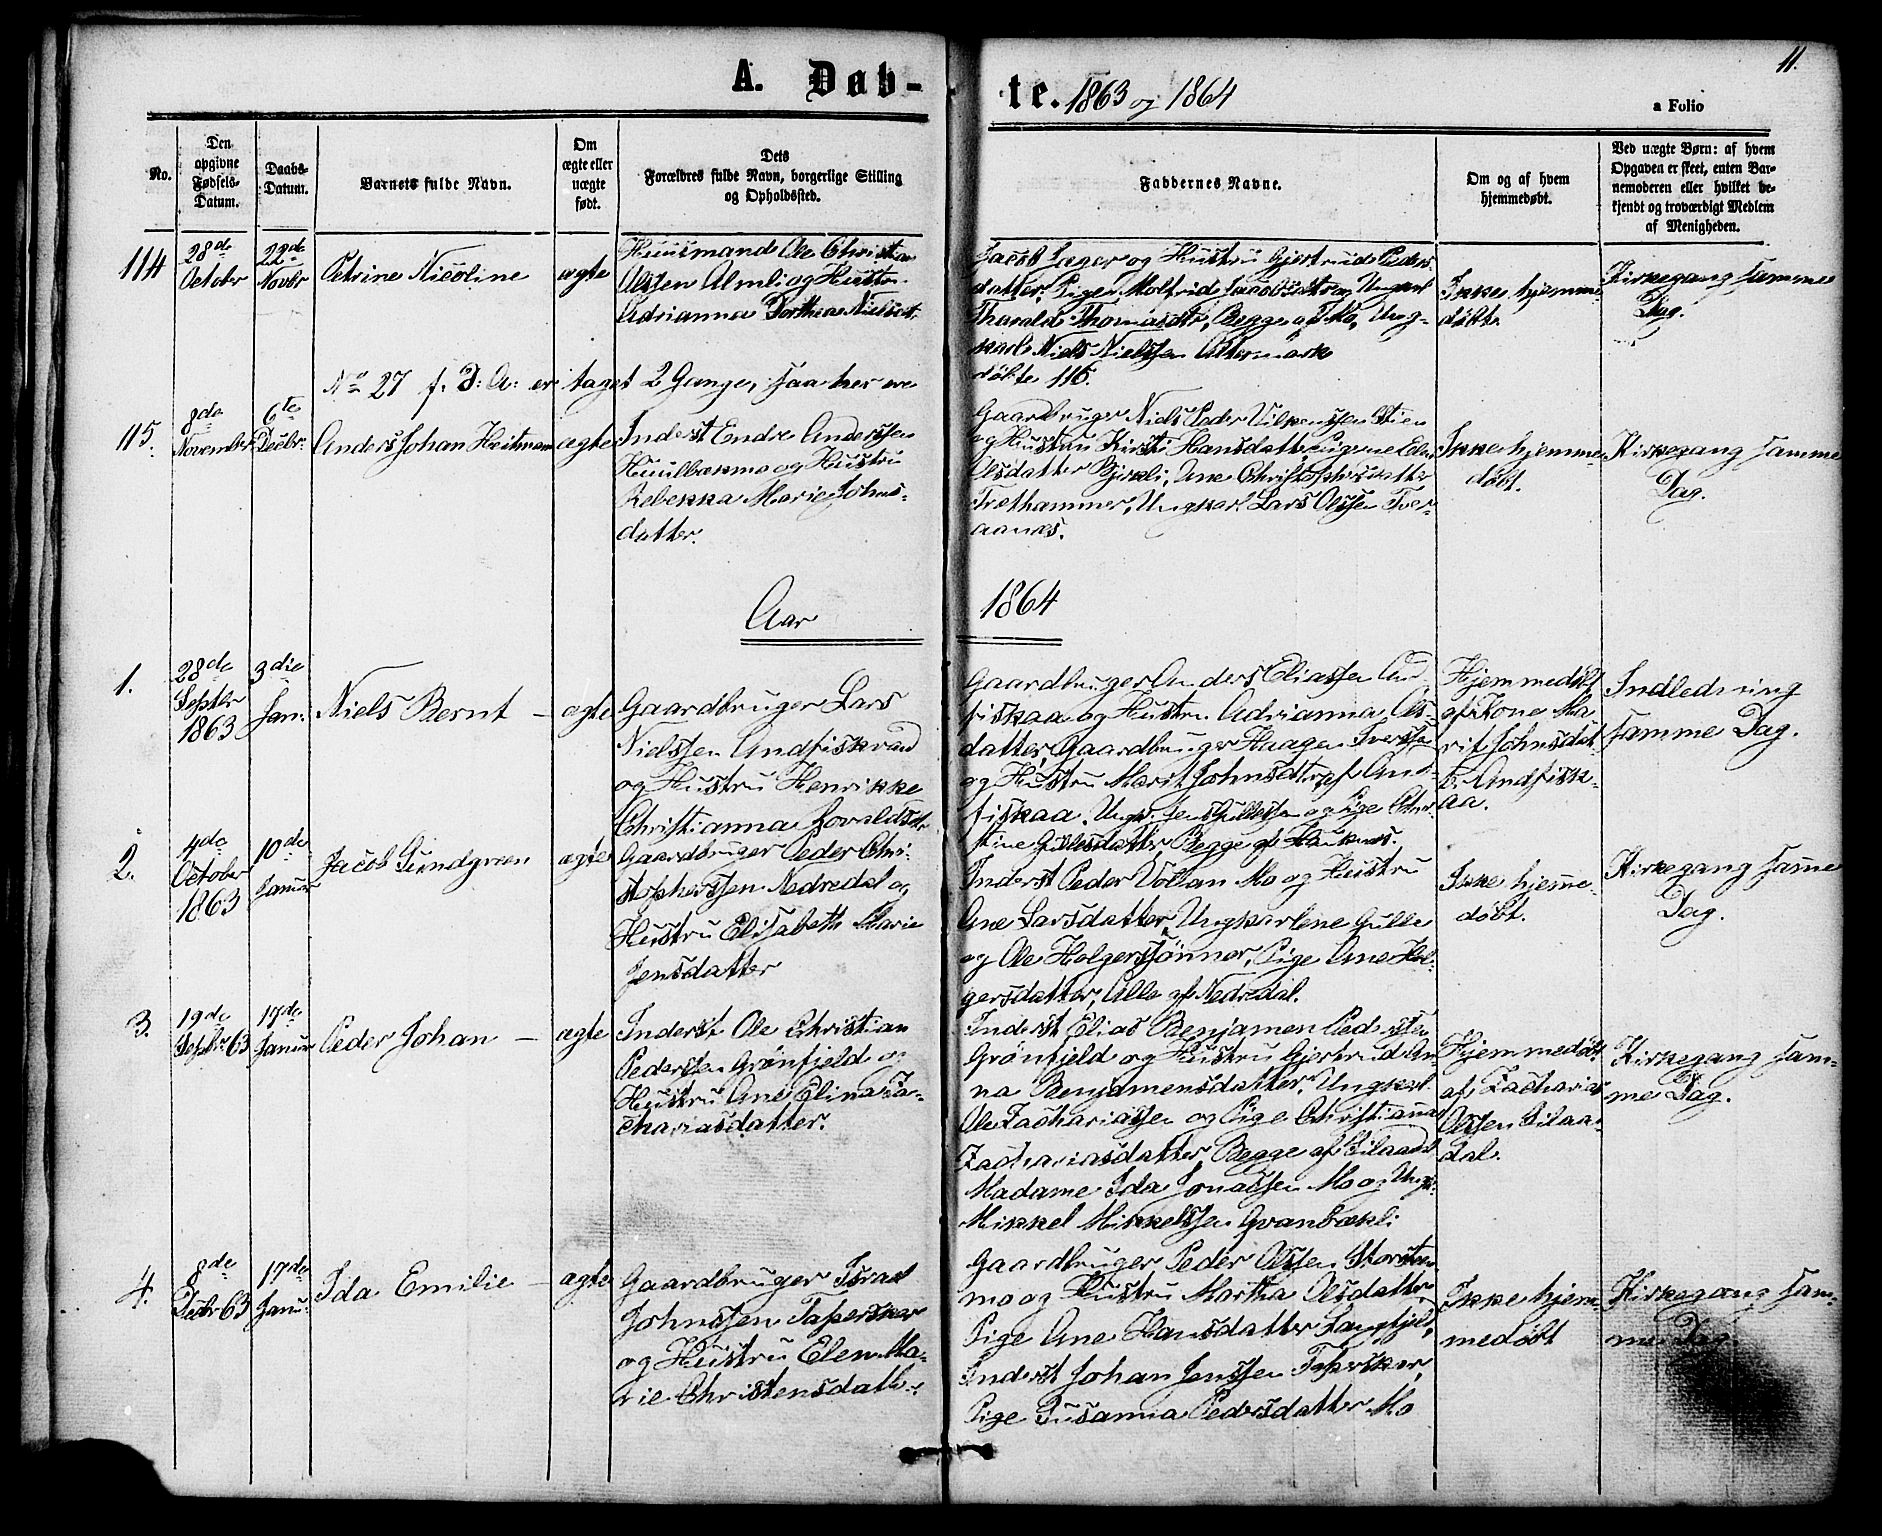 11.
A. Døb-
te. 1863 og 1864
a Folio
No.
Den
opgivne
Fødsels-
Datum.
Daabs-
Datum.
Barnets fulde Navn.
Om
ægte eller
uægte
født.
Dets
Forældres fulde Navn, borgerlige Stilling
og Opholdssted.
Faddernes Navne.
Om og af hvem
hjemmedøbt.
Ved uægte Børn: af hvem
Opgaven er skeet, enten Bar-
nemoderen eller hvilket be-
kjendt og troværdigt Medlem
af Menigheden.
114
28de
October
22de
Novbr
Petrine Nicoline
ægte
Huusmand Ole Christian
Olsen Almli og Hustru
Adrianna Dorthea Nielsdt.
Jacob Lager og Hustru Gjertrud Peders-
datter, Pige Molfrid Jacobsdtr og Ungkarl
Tharald Thomasdtr, Begge af Mo, Ung-
karl Niels Nielssen Altermark
døbte 115.
Ikke hjemme-
døbt.
Kirkegang samme
Dag.
No 27 f. D: A: er taget 2 Gange, saa her ere
115.
8de
November
6te
Decbr.
Anders Johan Heitmann
ægte
Inderst Endre Anderssen
Huulbækmo og Hustru
Rebekka Marie Johns-
datter.
Gaardbruger Niels Peder Vilkenssen Stien
og Hustru Kirsti Hansdatter, Pigerne Elen
Olsdatter Bjerkli, Ane Christophersdatter
Trethammer, Ungkarl Lars Olssen Tver-
aanes.
Ikke hjemme-
døbt.
Kirkegang samme
Dag.
Aar
1864
1.
28de
Septbr
1863
3die
Jan:
Niels Bernt —
ægte
Gaardbruger Lars
Nielssen Andfiskvand
og Hustru Henrikke
Christianna Lovaldsdtr
Gaardbruger Anders Eliassen And-
fiskaa og Hustru Adrianna Ols-
datter, Gaardbruger Haagen Iverssen
og Hustru Marit Johnsdtr af And-
fiskaa, Ungk. Jens Gullessen og Pige Chri-
stine Gullesdatter, Begge af Hauknes.
Hjemmedøbt
af Kone Ma-
rit Johnsdat-
t. Andfisk-
aa.
Indledning
samme Dag.
2.
4de
October
1863
10de
Januar
Jacob Lundgreen
ægte
Gaardbruger Peder Chri-
stopherssen Nedredal og
Hustru Elisabeth Marie
Jensdatter
Inderst Peder Vollan Mo og Hustru
Ane Larsdatter, Ungkarlene Gulle
og Ole Holgerssønner, Pige Ane Hol-
gersdatter, Alle af Nedredal.
Ikke hjemme-
døbt.
Kirkegang samme
Dag.
3.
19de
Septbr 63
17de
Januar
Peder Johan —
ægte
Inderst Ole Christian
Pederssen Grønfjeld og
Hustru Ane Elina Za-
chariasdatter.
Inderst Elias Benjamen Pederssen
Grønfjeld og Hustru Gjertrud An-
na Benjamensdatter, Ungkarl
Ole Zachariassen og Pige Christianna
Zachariasdatter, Begge af Pilaadal
Madame Ida Jonassen Mo og Ungk.
Mikkel Mikkelssen Granbækli
Hjemmedøbt
af Zacharias
Olssen Pilaa-
dal.
Kirkegang sam-
me Dag.
4.
8de
Decbr 63
17de
Janu:
Ida Emilie —
ægte
Gaardbruger Israel
Johnssen Tapeskar
og Hustru Elen Ma-
rie Christensdatter
Gaardbruger Peder Olssen Storsten-
mo og Hustru Martha Olsdatter,
Pige Ane Hansdatter Langfjeld,
Inderst Johan Jenssen Tapeskar,
Pige Susanna Pedersdatter Mo
Ikke hjem-
medøbt
Kirkegang sam-
me Dag